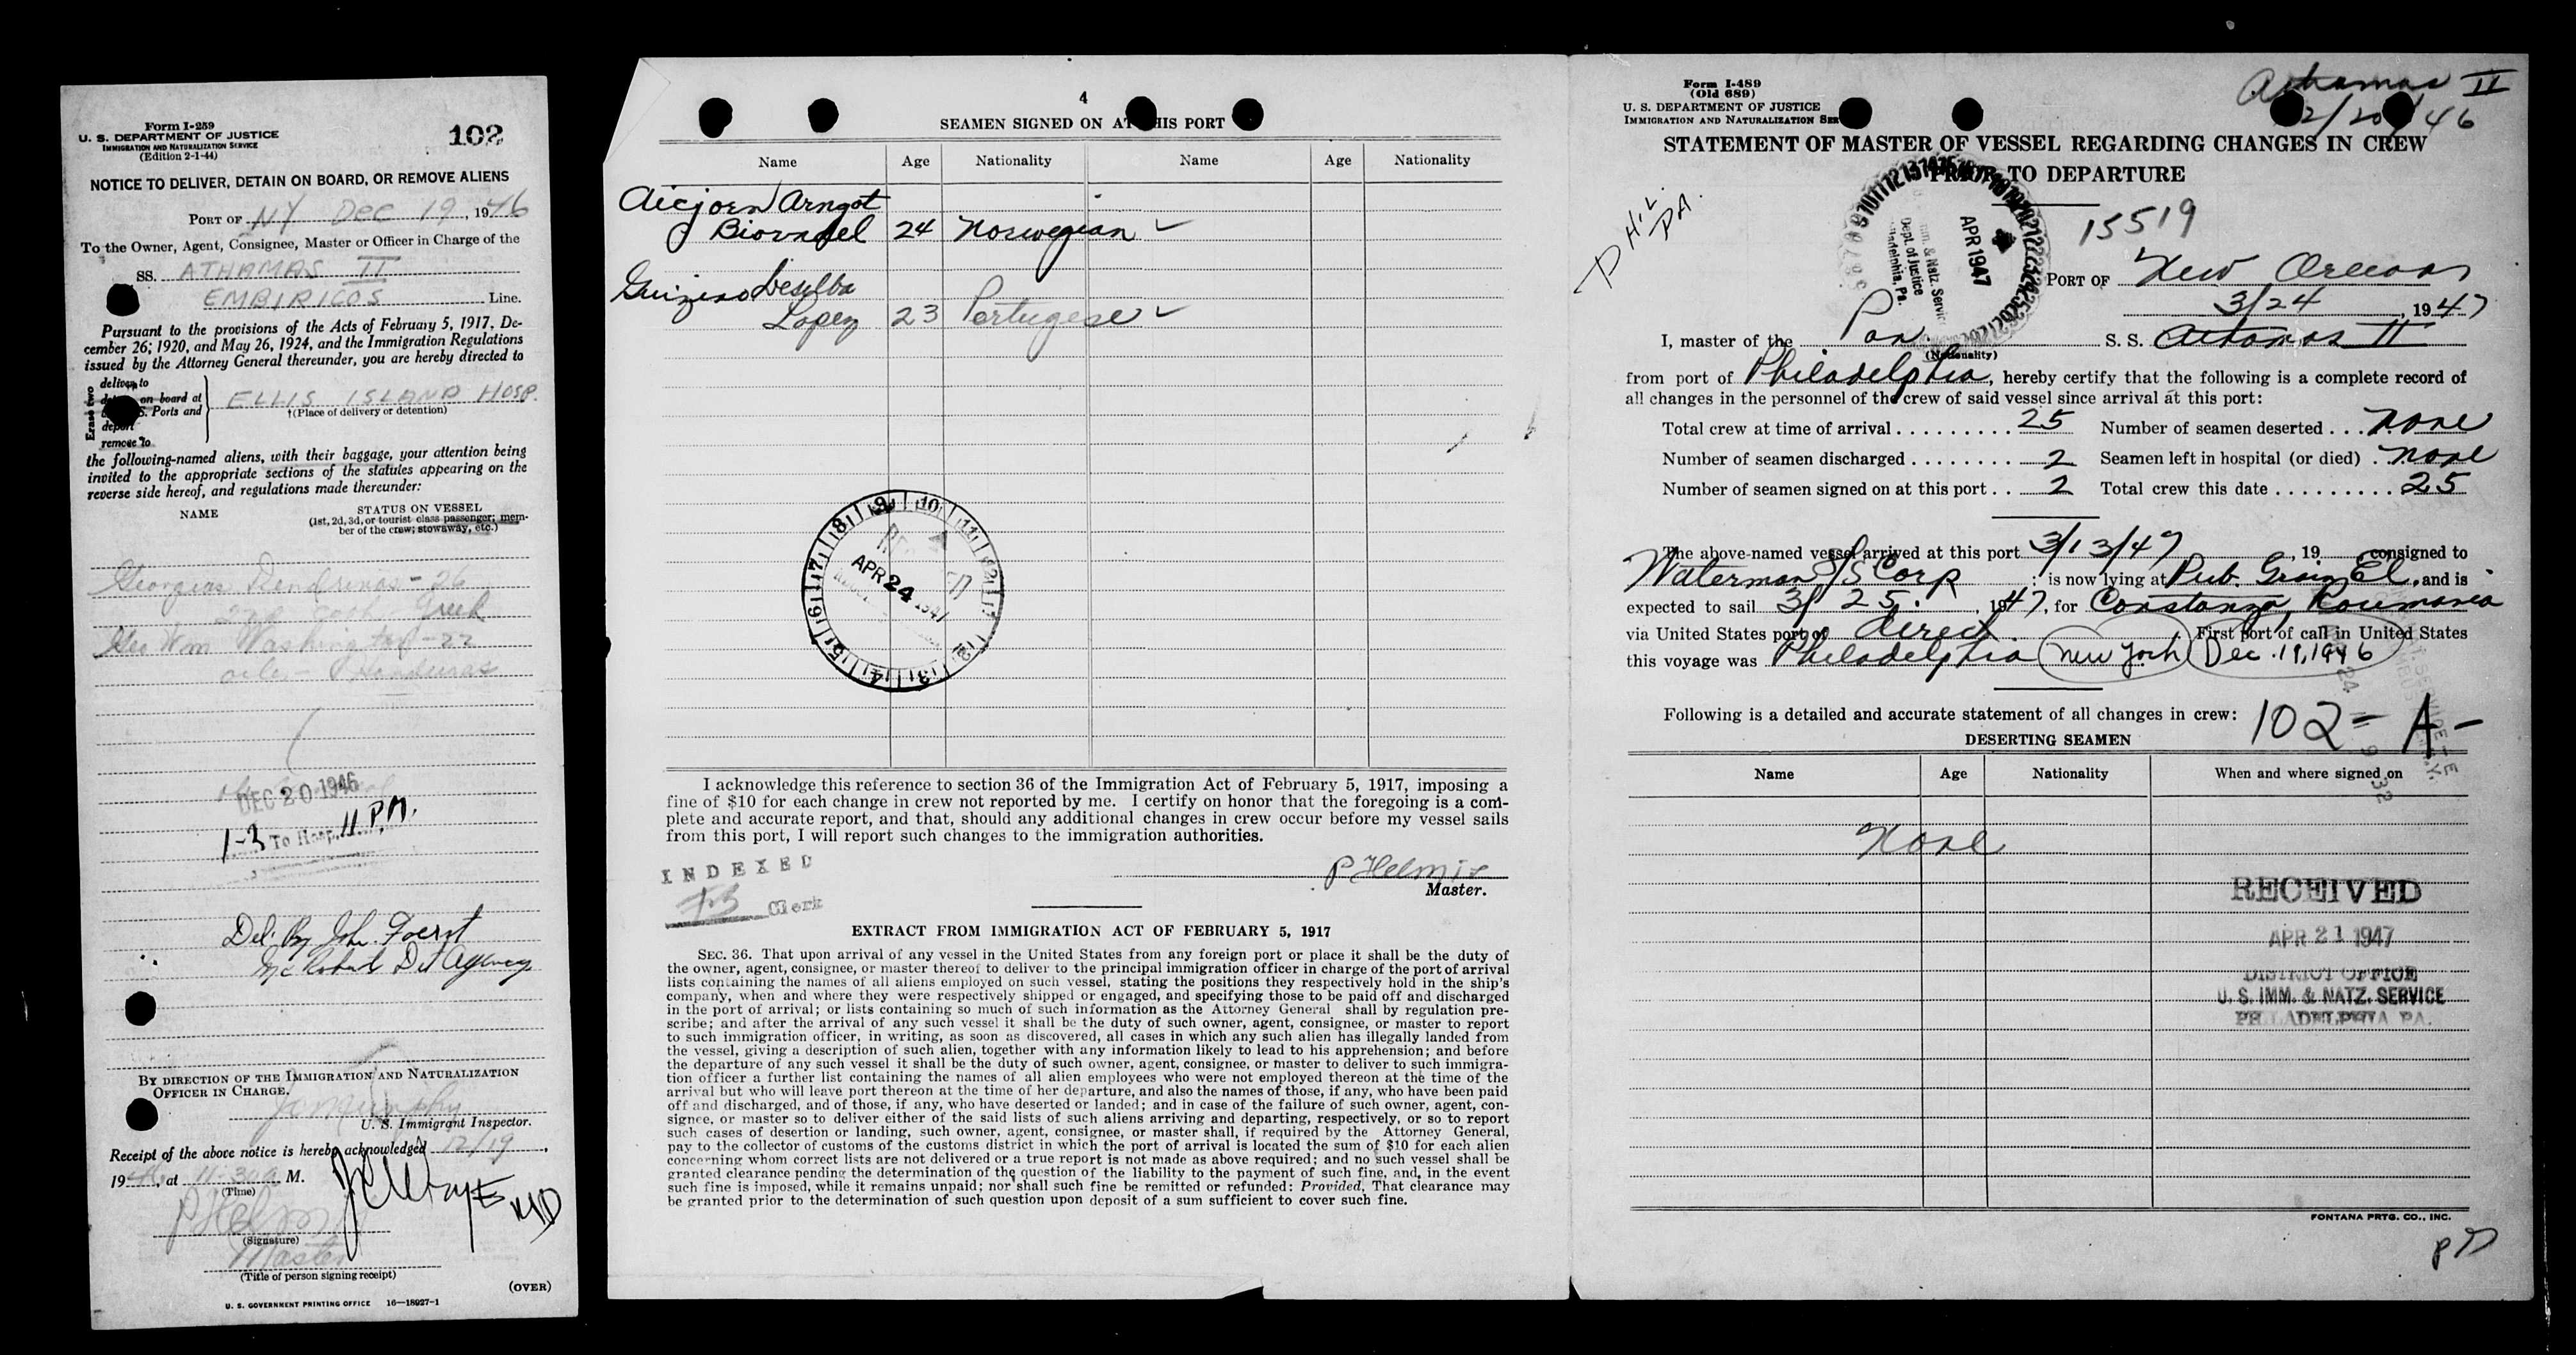 Form I-259
U. S. DEPARTMENT OF JUSTICE
IMMIGRATION AND NATURALIZATION SERVICE
(Edition 2-1-44)
102
NOTICE TO DELIVER, DETAIN ON BOARD, OR REMOVE ALIENS
PORT OF NY Dec 19, 1946
To the Owner, Agent, Consignee, Master or Officer in Charge of the
SS. ATHAMAS II
EMBIRICOS Line.
Pursuant to the provisions of the Acts of February 5, 1917, De-
cember 26, 1920, and May 26, 1924, and the Immigration Regulations
issued by the Attorney General thereunder, you are hereby directed to
Erase two
deliver to
on board at
Ports and
deport
remove to
ELLIS ISLAND HOSP.
†(Place of delivery or detention)
the following-named aliens, with their baggage, your attention being
invited to the appropriate sections of the statutes appearing on the
reverse side hereof, and regulations made thereunder:
NAME
STATUS ON VESSEL
(1st, 2d, 3d, or tourist class passenger; mem-
ber of the crew; stowaway, etc.)
Georgios Dendrinos - 26
Greek
Geo Wm Washington - 22
oiler - Honduras
DEC 20 1946
1-3 To Hosp. 11 PM.
Del. By John Foerst
Mc Roberts Det Agency
BY DIRECTION OF THE IMMIGRATION AND NATURALIZATION
OFFICER IN CHARGE.
Murphy
U. S. Immigrant Inspector.
Receipt of the above notice is hereby acknowledged 12/19,
1946, at 11:30 a M.
(Time)
P Helmis
(Signature)
MD
Master
(Title of person signing receipt)
(OVER)
U. S. GOVERNMENT PRINTING OFFICE 16—18927-1
4
SEAMEN SIGNED ON AT THIS PORT
Name Age Nationality Name Age Nationality
Aicjorn Arngot
Biorndel 24 Norwegian ✓
Guizero Deselba
Lopez 23 Portugese ✓
APR 24 1947
I acknowledge this reference to section 36 of the Immigration Act of February 5, 1917, imposing a
fine of $10 for each change in crew not reported by me. I certify on honor that the foregoing is a com-
plete and accurate report, and that, should any additional changes in crew occur before my vessel sails
from this port, I will report such changes to the immigration authorities.
INDEXED
Clerk
P Helmis
Master.
EXTRACT FROM IMMIGRATION ACT OF FEBRUARY 5, 1917
SEC. 36. That upon arrival of any vessel in the United States from any foreign port or place it shall be the duty of
the owner, agent, consignee, or master thereof to deliver to the principal immigration officer in charge of the port of arrival
lists containing the names of all aliens employed on such vessel, stating the positions they respectively hold in the ship's
company, when and where they were respectively shipped or engaged, and specifying those to be paid off and discharged
in the port of arrival; or lists containing so much of such information as the Attorney General shall by regulation pre-
scribe; and after the arrival of any such vessel it shall be the duty of such owner, agent, consignee, or master to report
to such immigration officer, in writing, as soon as discovered, all cases in which any such alien has illegally landed from
the vessel, giving a description of such alien, together with any information likely to lead to his apprehension; and before
the departure of any such vessel it shall be the duty of such owner, agent, consignee, or master to deliver to such immigra-
tion officer a further list containing the names of all alien employees who were not employed thereon at the time of the
arrival but who will leave port thereon at the time of her departure, and also the names of those, if any, who have been paid
off and discharged, and of those, if any, who have deserted or landed; and in case of the failure of such owner, agent, con-
signee, or master so to deliver either of the said lists of such aliens arriving and departing, respectively, or so to report
such cases of desertion or landing, such owner, agent, consignee, or master shall, if required by the Attorney General,
pay to the collector of customs of the customs district in which the port of arrival is located the sum of $10 for each alien
concerning whom correct lists are not delivered or a true report is not made as above required; and no such vessel shall be
granted clearance pending the determination of the question of the liability to the payment of such fine, and, in the event
such fine is imposed, while it remains unpaid; nor shall such fine be remitted or refunded: Provided, That clearance may
be granted prior to the determination of such question upon deposit of a sum sufficient to cover such fine.
Form I-489
(Old 689)
U. S. DEPARTMENT OF JUSTICE
IMMIGRATION AND NATURALIZATION SER
Athamas II
12/20/46
STATEMENT OF MASTER OF VESSEL REGARDING CHANGES IN CREW
PRIOR TO DEPARTURE
PHIL. PA.
APR 1947
Imm. & Natz. Service
Dept. of Justice
Philadelphia, Pa.
15519
PORT OF New Orleans
3/24, 1947
I, master of the Pan. S. S. Athamas II
(Nationality)
from port of Philadelphia, hereby certify that the following is a complete record of
all changes in the personnel of the crew of said vessel since arrival at this port:
Total crew at time of arrival . . . . . . . . . 25 Number of seamen deserted . . . none
Number of seamen discharged . . . . . . . . 2 Seamen left in hospital (or died) . none
Number of seamen signed on at this port . . 2 Total crew this date . . . . . . . . . 25
The above-named vessel arrived at this port 3/13/47, 19 consigned to
Waterman S/S Corp; is now lying at Pub. Grain El., and is
expected to sail 3/25, 1947, for Constanza, Roumania
via United States port of direct. First port of call in United States
this voyage was Philadelphia New York Dec. 19, 1946
Following is a detailed and accurate statement of all changes in crew: 102-A-
DESERTING SEAMEN
Name Age Nationality When and where signed on
None
RECEIVED
APR 21 1947
DISTRICT OFFICE
U. S. IMM. & NATZ. SERVICE
PHILADELPHIA PA.
FONTANA PRTG. CO., INC.